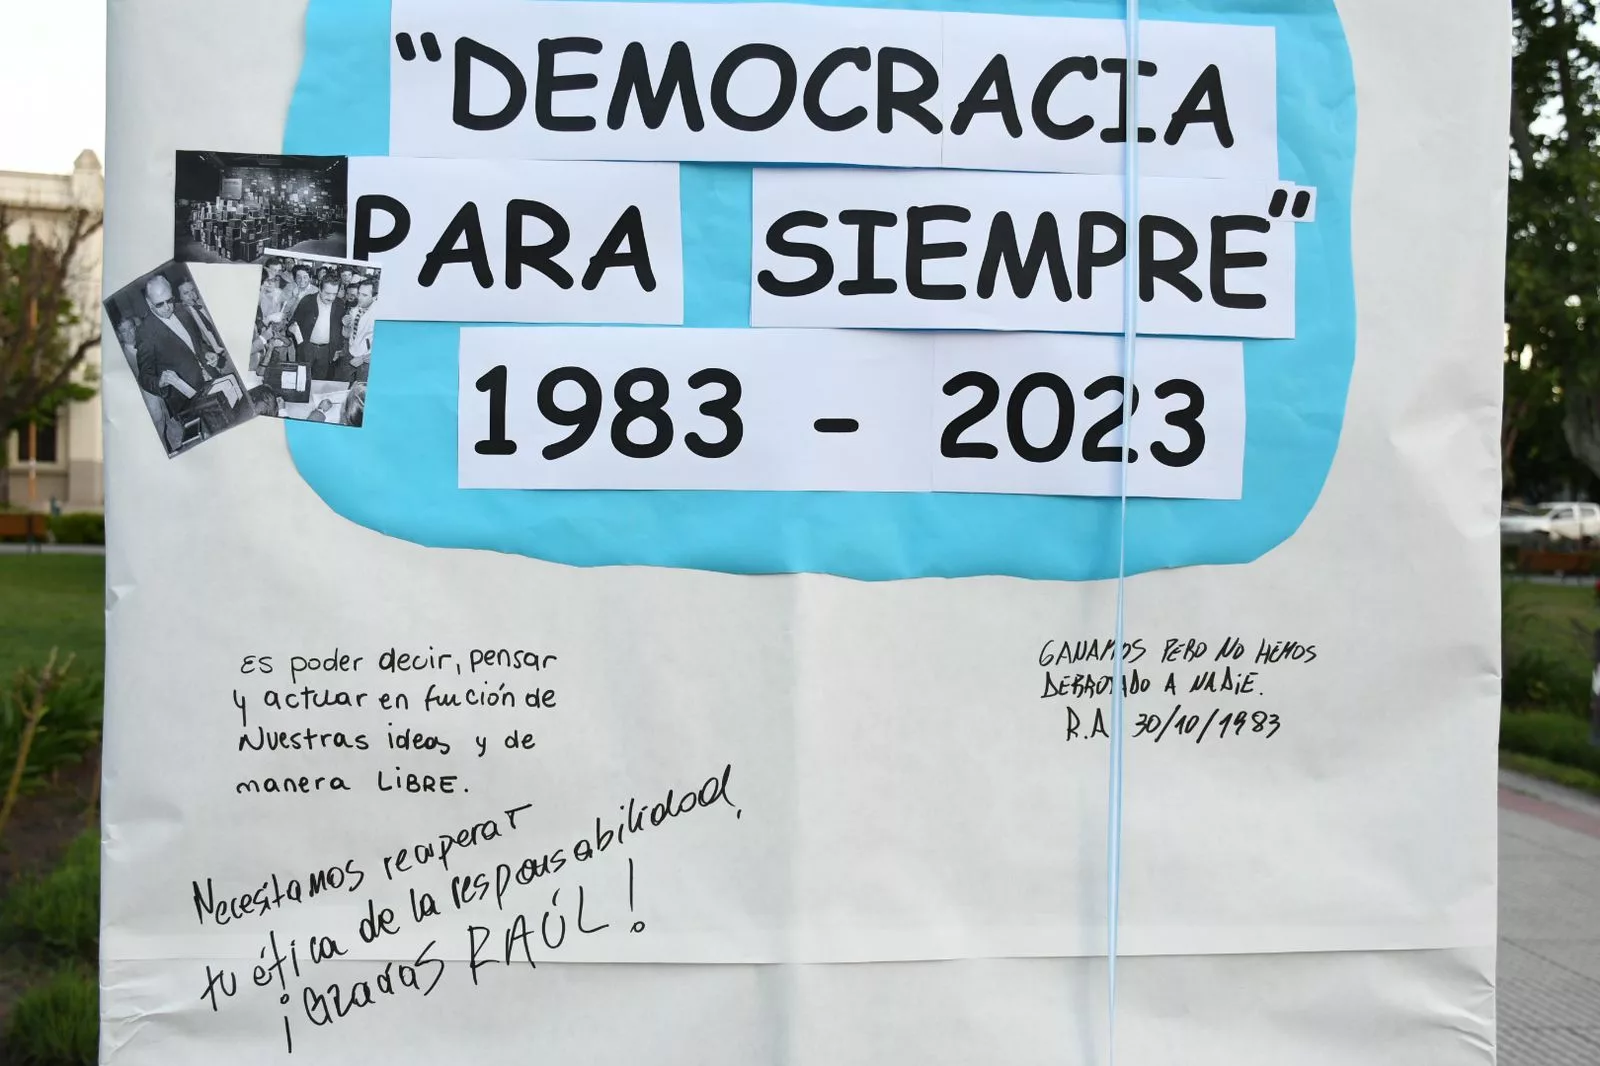 "DEMOCRACIA
PARA SIEMPRE"
1983 - 2023
Es poder decir, pensar
y actuar en fución de
Nuestras ideas y de
manera LIBRE.
Necesitamos recuperar
tu ética de la responsabilidad,
¡Gracias RAÚL!
GANAMOS PERO NO HEMOS
DERROTADO A NADIE.
R.A 30/10/1983